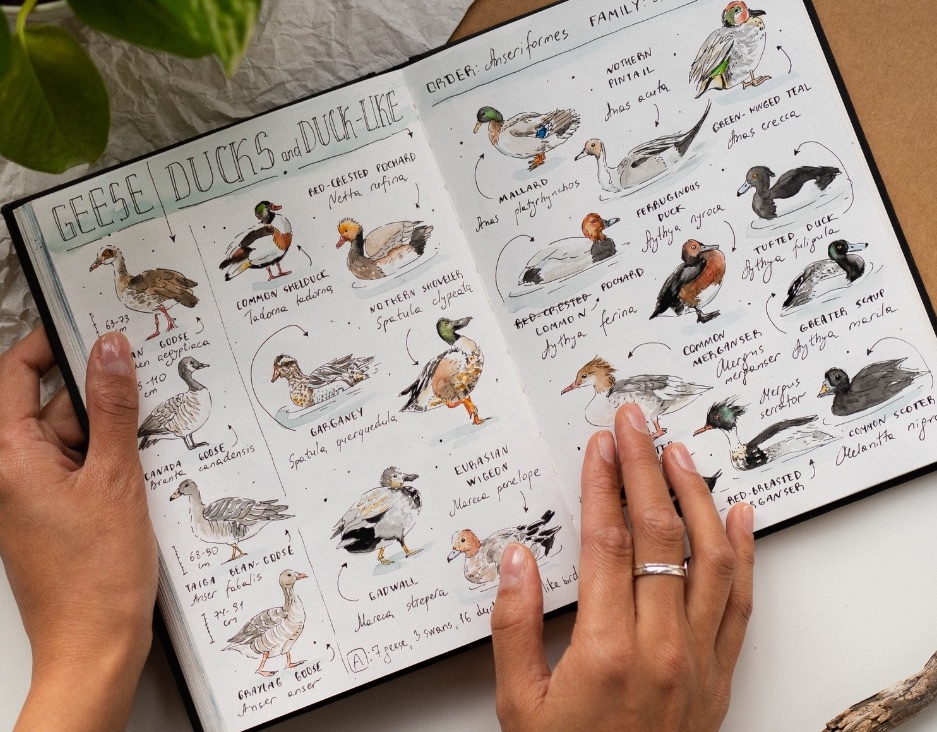 GEESE DUCKS and DUCK-LIKE
63-73
cm
GOOSE
aegyptiaca
-110
cm
CANADA GOOSE
Branta canadensis
63-90
cm
TAIGA BEAN-GOOSE
Anser fabalis
74-91
cm
GRAYLAG GOOSE
Anser anser
COMMON SHELDUCK
Tadorna tadorna
RED-CRESTED POCHARD
Netta rufina
GARGANEY
Spatula querquedula
NOTHERN SHOVELER
Spatula clypeata
GADWALL
Mareca strepera
EURASIAN
WIGEON
Mareca penelope
A: 7 geese, 3 swans, 16 like bird
ORDER: Anseriformes FAMILY:
MALLARD
Anas platyrhynchos
NOTHERN
PINTAIL
Anas acuta
GREEN-WINGED TEAL
Anas crecca
RED-CRESTED POCHARD
COMMON
Aythya ferina
FERRUGINOUS
DUCK
Aythya nyroca
TUFTED DUCK
Aythya fuligula
COMMON
MERGANSER
Mergus
merganser
GREATER SCAUP
Aythya marila
Mergus
serrator
RED-BREASTED
COMMON SCOTER
Melanitta nigra